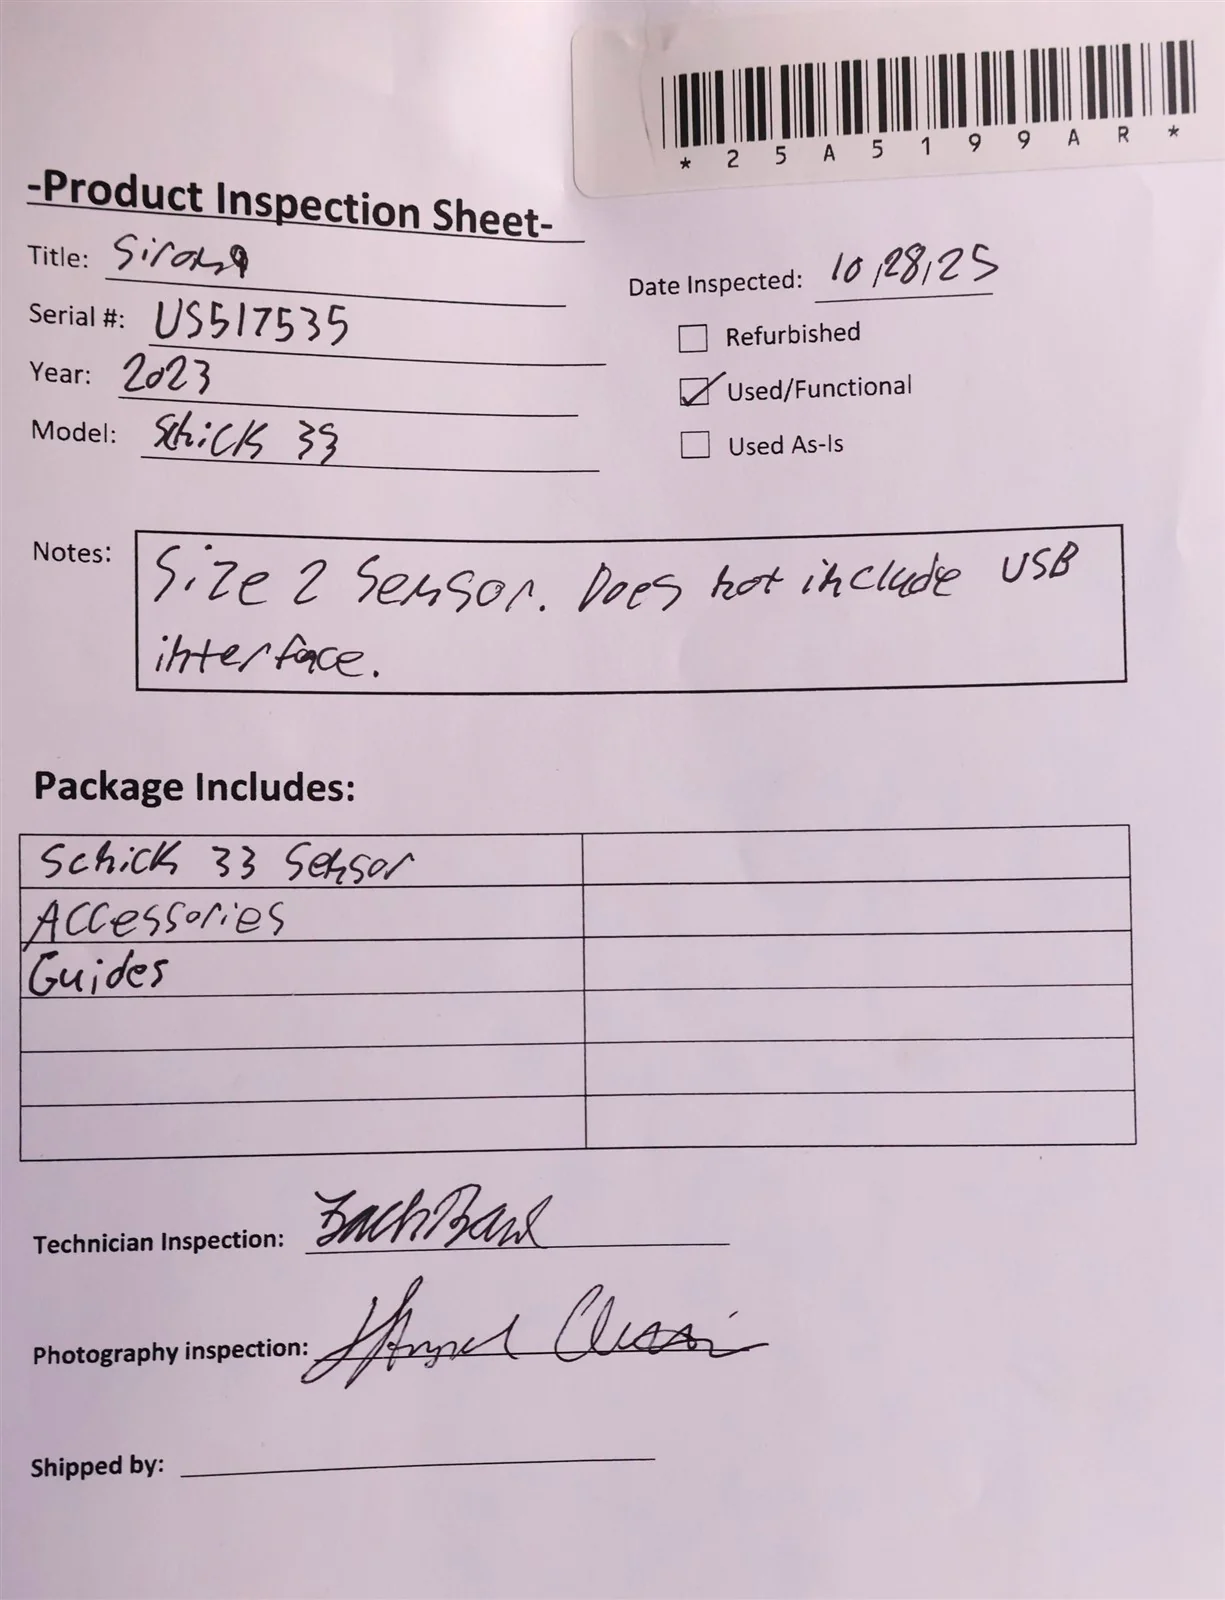 *25A5199AR*
-Product Inspection Sheet-
Title: Sirona
Date Inspected: 10/28/25
Serial #: US517535
Refurbished
Year: 2023
Used/Functional
Model: Schick 33
Used As-Is
Notes: Size 2 Sensor. Does not include USB
interface.
Package Includes:
Schick 33 Sensor
Accessories
Guides
Technician Inspection:
Photography inspection:
Shipped by: